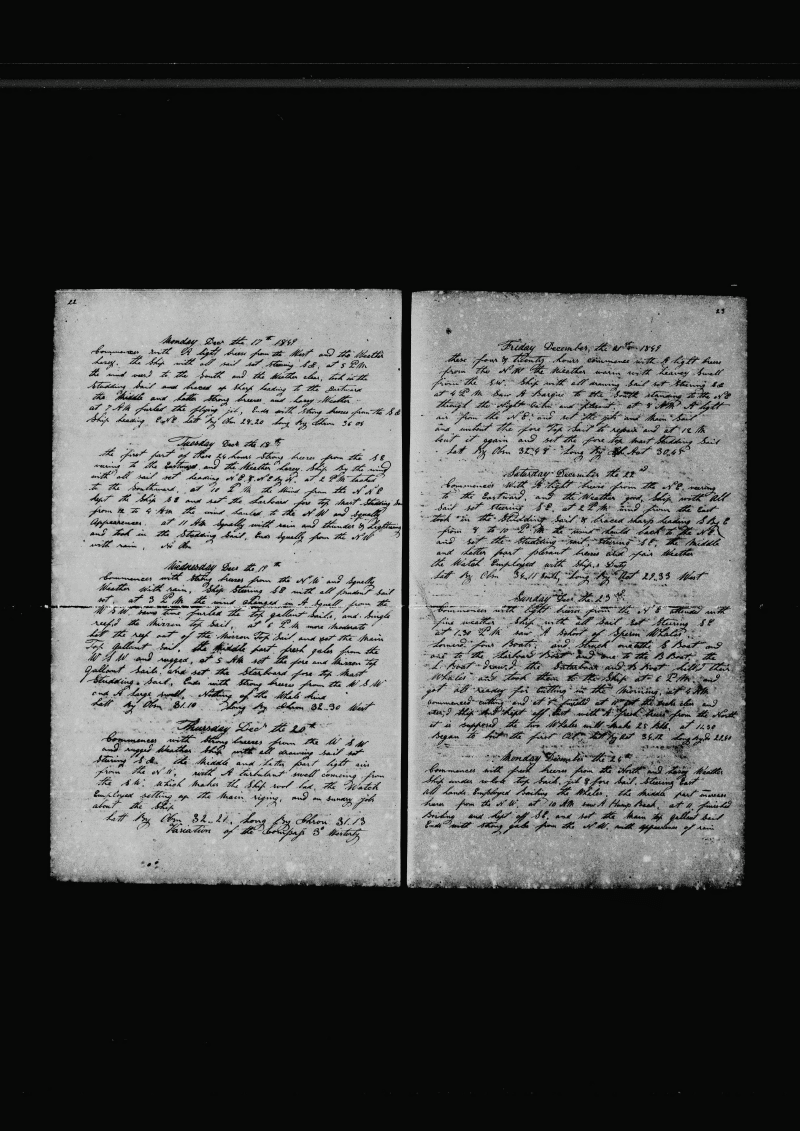 22
Monday Dec the 17th 1849
Commences with A light breeze from the West and the Weather
hazey. the Ship with all sail set stearing SE, at 5 P.M.
the wind veerd to the South and the Weather clear, took in the
Studding Sail and braced up Sharp heading to the Eastward
the Middle and latter Strong breeze and hazy Weather
at 7 AM furled the flying jib, Ends with Strong breeze from the S E
Ship heading ENE Latt By Obn 29.20 Long By Chron 36 05
Tuesday Decm the 18th
the first part of these 24 hours Strong breeze from the S E
varing to the Eastward and the Weather hazey, Ship By the wind
with all sail set heading N E & N E by N, at 2 P M tacked
to the Southward, at 10 P M the Wind from the N N E
kept the Ship SE and set the larboard fore top Mast Studding Sail
from 12 to 4 AM the wind hauled to the N W and Squally
Appearences. at 11 AM Squally with rain and thunder & lightning
and took in the Studding Sail, Ends Squally from the N W
with rain, No Obn
Wednesday Dec the 19th
Commences with Strong breezes from the N W and Squally
Weather with rain, Ship Stearing SE with all prudent Sail
set, at 3 P M the wind changed in A Squall from the
W S W. same time furled the top gallant Sails, and Single
reefd the Mizzon top Sail, at 6 P M more moderate
let the reef out of the Mizzon top Sail and set the Main
Top Gallant Sail, the Middle part fresh gales from the
W S W and rugged, at 5 AM set the fore and Mizzon top
Gallant Sails, And set the Starboard fore top Mast
Studding Sail, Ends with Strong breezes from the W S W
and A large swell, Nothing of the Whale kind
Latt By Obn 31.10 Long By Chron 32.30 West
Thursday Decr the 20th
Commences with strong breezes from the W S W
and rugged Weather Ship with all drawing sail set
Stearing S E, the Middle and later part light airs
from the N W, with A turbulent swell comeing from
the S W. which makes the Ship rool bad, the Watch
Employed setting up the Main riging, and on sundry job
about the Ship
Latt By Obn 32.21, Long By Chron 31.13
Variation of the Compass 3° Westerly
23
Friday December, the 21st 1849
these four & twenty hours commence with A light breeze
from the N W the Weather warm with heavey Swell
from the SW. Ship with all drawing Sail set Stearing SE
at 4 P M Saw A Barque to the South standing to the NE
through the Night calm and pleasent, at 8 AM A light
air from the N E and set the jib and Main Sail
and unbent the fore top Sail to repair and at 12 M
bent it again and set the fore top Mast Studding Sail
Latt By Obn 32.48 Long By 30.45
Saturday December the 22nd
Commences With A light breeze from the N E, varing
to the Eastward, and the Weather good, Ship with All
Sail set Stearing S E, at 2 P M wind from the East
took in the Studding Sail & braced sharp heading S By E
from 8 to 10 P M the wind hauld back to the N E
and set the Studding sail, Stearing S E, the Middle
and latter part plesent breeze and fair Weather
the Watch Employed with Ships Duty
Latt By Obn 34.11 South, Long By 29.33 West
Sunday Dec the 23rd
Commences with light breeze from the N E attended with
fine weather Ship with all Sail set Stearing S E
at 1.30 P M saw A School of Sperm Whales
lowerd four Boats, and Struck onewith S Boat and
one to the Larboard Boat and one to the B Boat, the
L Boat drawd, the Starboard and B Boat killd their
Whales and took them to the Ship at 6 P M and
got all ready for cutting in the Morning, at 4 AM
commenced cutting and at finished
Ship And kept off East with A fresh breeze from the North
it is supposed the two Whales will Make 25 Bbls, at 11.30
Began to boil the first Latt By Obn 34.12 Long
Monday December the 24th
Commences with fresh breezes from the North and hazey Weather
Ship under whole top Sails, jib & fore Sail, Stearing East
All hands Employed Boiling the Whales, the Middle part increas
breeze from the N W, at 10 AM saw A Hump Back, at 11 finished
Boiling, and kept off SE, and set the Main top gallant Sail
Ends with strong gales from the N W, with appearence of rain